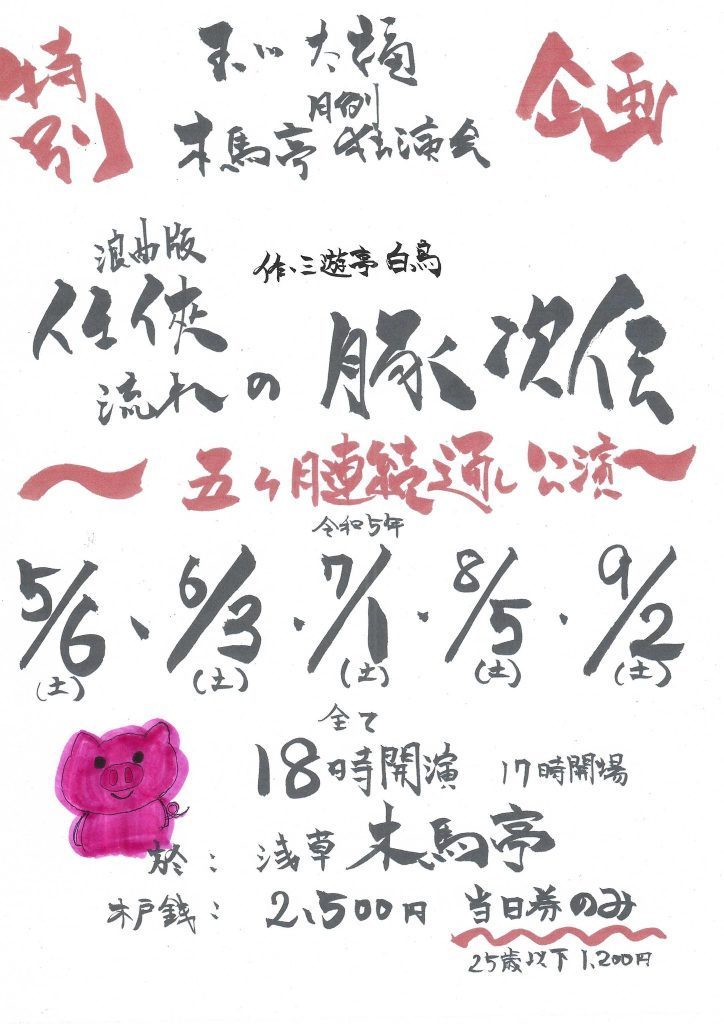 特別
企画
玉川太福
月例
木馬亭独演会
浪曲版
作・三遊亭白鳥
任侠
流れの豚次伝
〜五ヶ月連続通し公演〜
令和5年
5/6、6/3・7/1・8/5・9/2
(土) (土) (土) (土) (土)
全て
18時開演 17時開場
於：浅草木馬亭
木戸銭：2,500円 当日券のみ
25歳以下1,200円